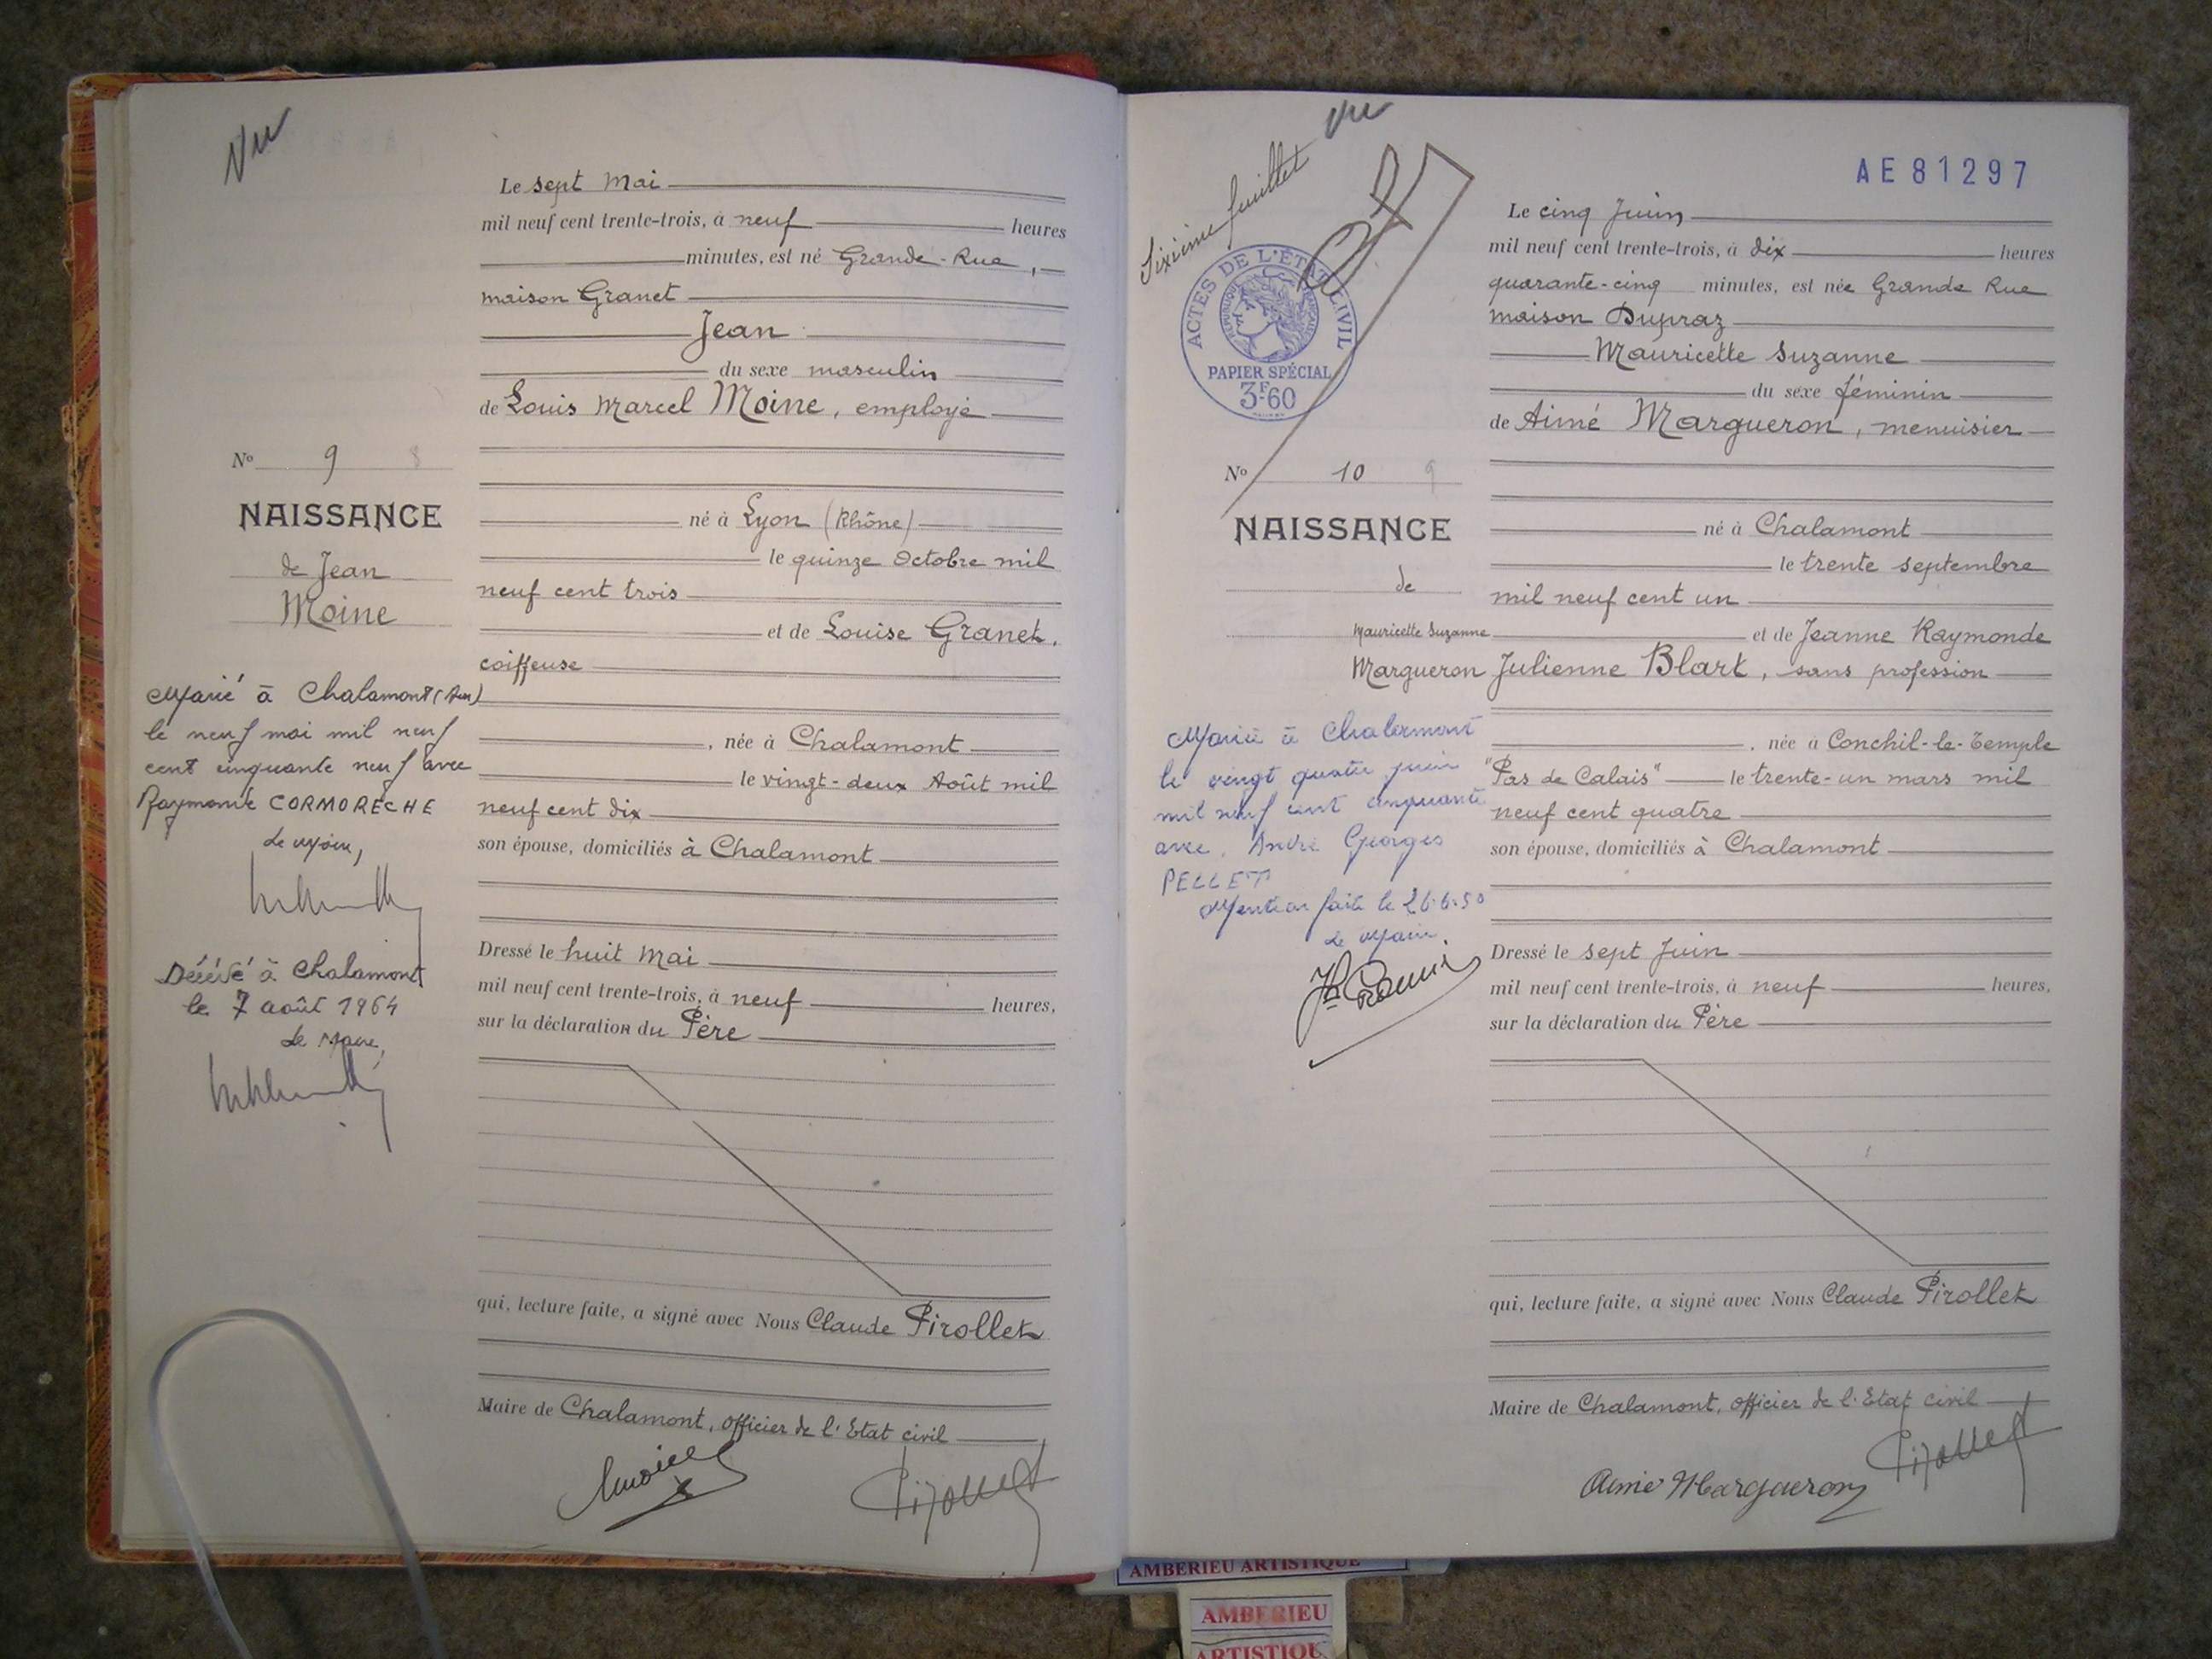 Vu
Le sept Mai
mil neuf cent trente-trois, à neuf heures
minutes, est né Grande-Rue,
maison Granet
Jean
du sexe masculin
de Louis Marcel Moine, employé
né à Lyon (Rhône)
le quinze Octobre mil
neuf cent trois
et de Louise Granet,
coiffeuse
, née à Chalamont
le vingt-deux Août mil
neuf cent dix
son épouse, domiciliés à Chalamont
Dressé le huit Mai
mil neuf cent trente-trois, à neuf heures,
sur la déclaration du Père
qui, lecture faite, a signé avec Nous Claude Pirollet
Maire de Chalamont, Officier de l'Etat civil
Pirollet
No 9 8
NAISSANCE
de Jean
Moine
Marié à Chalamont (Ain)
le neuf mai mil neuf
cent cinquante neuf avec
Raymonde CORMORECHE
Le Maire,
Décédé à Chalamont
le 7 août 1964
Le Maire,
Vu
Sixième feuillet
ACTES DE L'ÉTAT CIVIL
RÉPUBLIQUE FRANÇAISE
PAPIER SPÉCIAL
3F.60
AE 81297
Le cinq Juin
mil neuf cent trente-trois, à dix heures
quarante-cinq minutes, est née Grande Rue
maison Dupraz
Mauricette Suzanne
du sexe féminin
de Aimé Margueron, menuisier
né à Chalamont
le trente septembre
mil neuf cent un
et de Jeanne Raymonde
Julienne Blart, sans profession
, née à Conchil-le-Temple
"Pas de Calais" le trente-un mars mil
neuf cent quatre
son épouse, domiciliés à Chalamont
Dressé le sept Juin
mil neuf cent trente-trois, à neuf heures,
sur la déclaration du Père
qui, lecture faite, a signé avec Nous Claude Pirollet
Maire de Chalamont, Officier de l'Etat civil
Pirollet
Aimé Margueron
No 10 9
NAISSANCE
de
Mauricette Suzanne
Margueron
Mariée à Chalamont
le vingt quatre juin
mil neuf cent cinquante
avec André Georges
PELLET
Mention faite le 26.6.50
Le Maire
AMBERIEU ARTISTIQUE
AMBERIEU
ARTISTIQU